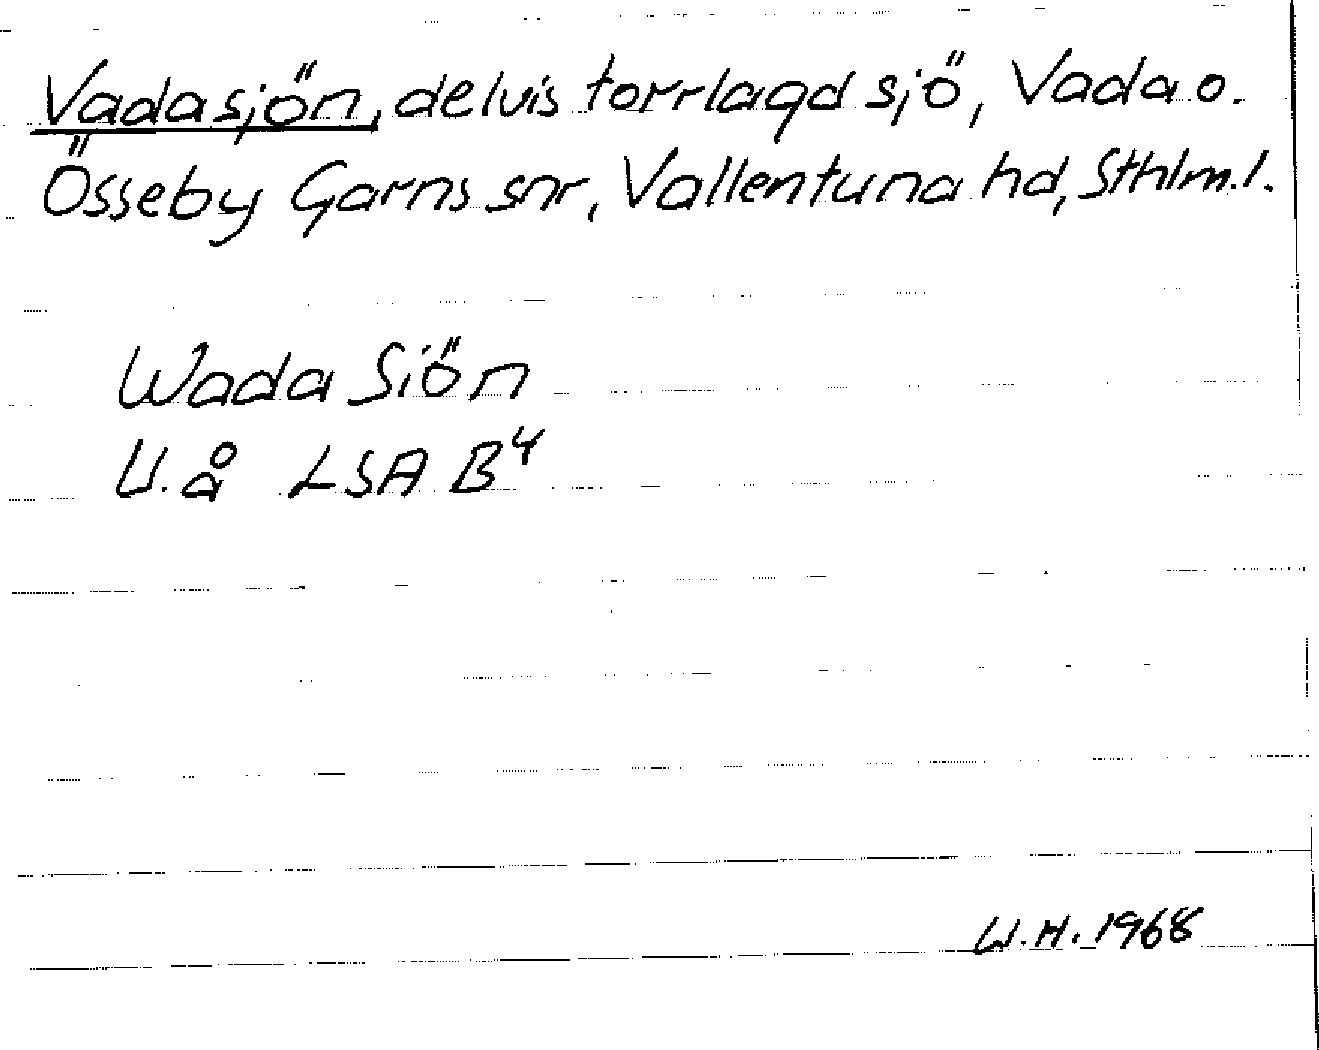 Vadasjön, delvis torrlagd sjö, Vada o.
Össeby Garns snr, Vallentuna hd, Sthlm.l.
Wada Siön
U.å LSA B⁴
W.H. 1968